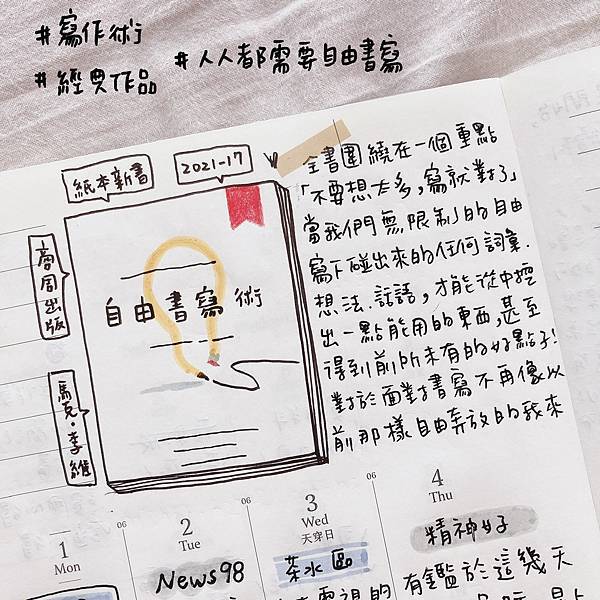 #寫作術
#經典作品 #人人都需要自由書寫
紙本新書
2021-17
商周出版
馬克·李維
自由書寫術
全書圍繞在一個重點
「不要想太多,寫就對了」
當我們無限制的自由
寫下碰出來的任何詞彙.
想法.話語,才能從中挖
出一點能用的東西,甚至
得到前所未有的好點子!
對於面對書寫不再像以
前那樣自由奔放的我來
06
06
1
Mon
2
Tue
3
Wed
天穿日
4
Thu
News98
茶水區
精神好
有鑑於這幾天